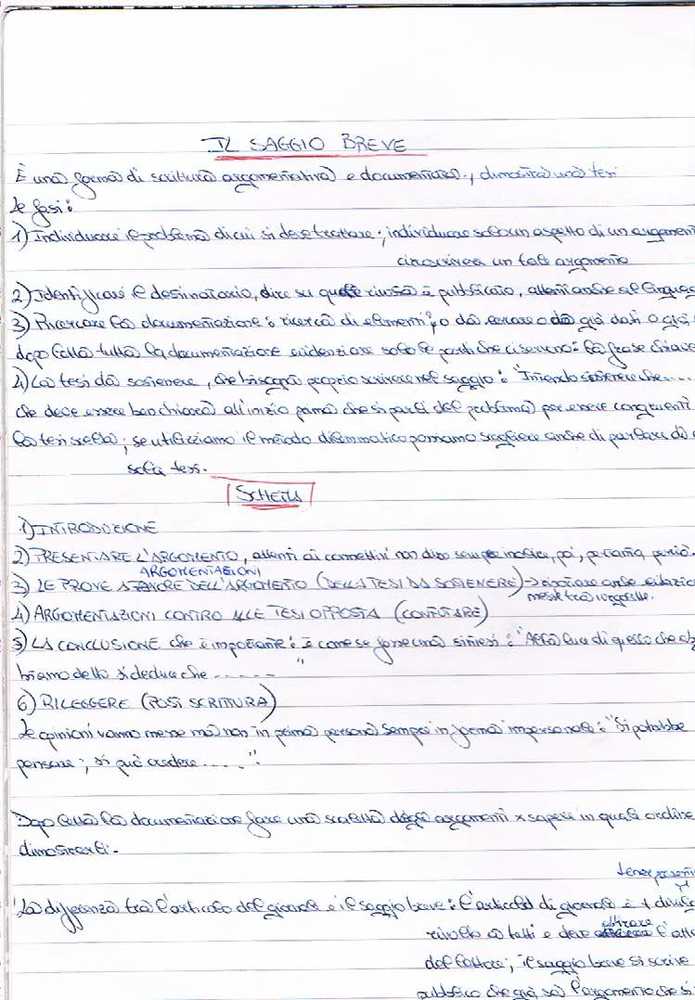 IL SAGGIO BREVE
È una forma di scrittura argomentativa e documentata, dimostra una tesi
Le fasi:
1) Individuare il problema di cui si deve trattare; individuare solo un aspetto di un argoment
circoscrivere un tale argomento
2) Identificare il destinatario, dire su quale rivista è pubblicato, attenti anche al linguag
3) Ricercare la documentazione: ricerca di elementi o da cercare o da già dati o già
dopo letta tutta la documentazione evidenziare solo le parti che ci servono: la frase chiave
4) La tesi da sostenere, che bisogna proprio scrivere nel saggio: "Intendo sostenere che....
che deve essere ben chiara all'inizio prima che si parli del problema per essere congruenti
la tesi scelta; se utilizziamo il metodo dilemmatico possiamo scegliere anche di parlare di
sola tesi.
SCHEMA
1) INTRODUZIONE
2) PRESENTARE L'ARGOMENTO, attenti ai connettivi non dire sempre inoltre, poi, pertanto, perciò.
ARGOMENTAZIONI
3) LE PROVE A FAVORE DELL'ARGOMENTO (DELLA TESI DA SOSTENERE) → riportare anche citazion
messe tra virgolette.
4) ARGOMENTAZIONI CONTRO ALLE TESI OPPOSTA (CONFUTARE)
5) LA CONCLUSIONE che è importante: è come se fosse una sintesi: "Alla luce di quello che ab
biamo detto si deduce che ......"
6) RILEGGERE (POST SCRITTURA)
Le opinioni vanno messe ma non in prima persona sempre in forma impersonale: "Si potrebbe
pensare; si può credere ....."
Dopo letta la documentazione fare una scaletta degli argomenti x sapere in quale ordine
dimostrarli.
La differenza tra l'articolo del giornale e il saggio breve: l'articolo di giornale è +
rivolto a tutti e deve attirare l'atte
del lettore; il saggio breve si scrive
pubblico che già sa l'argomento che si